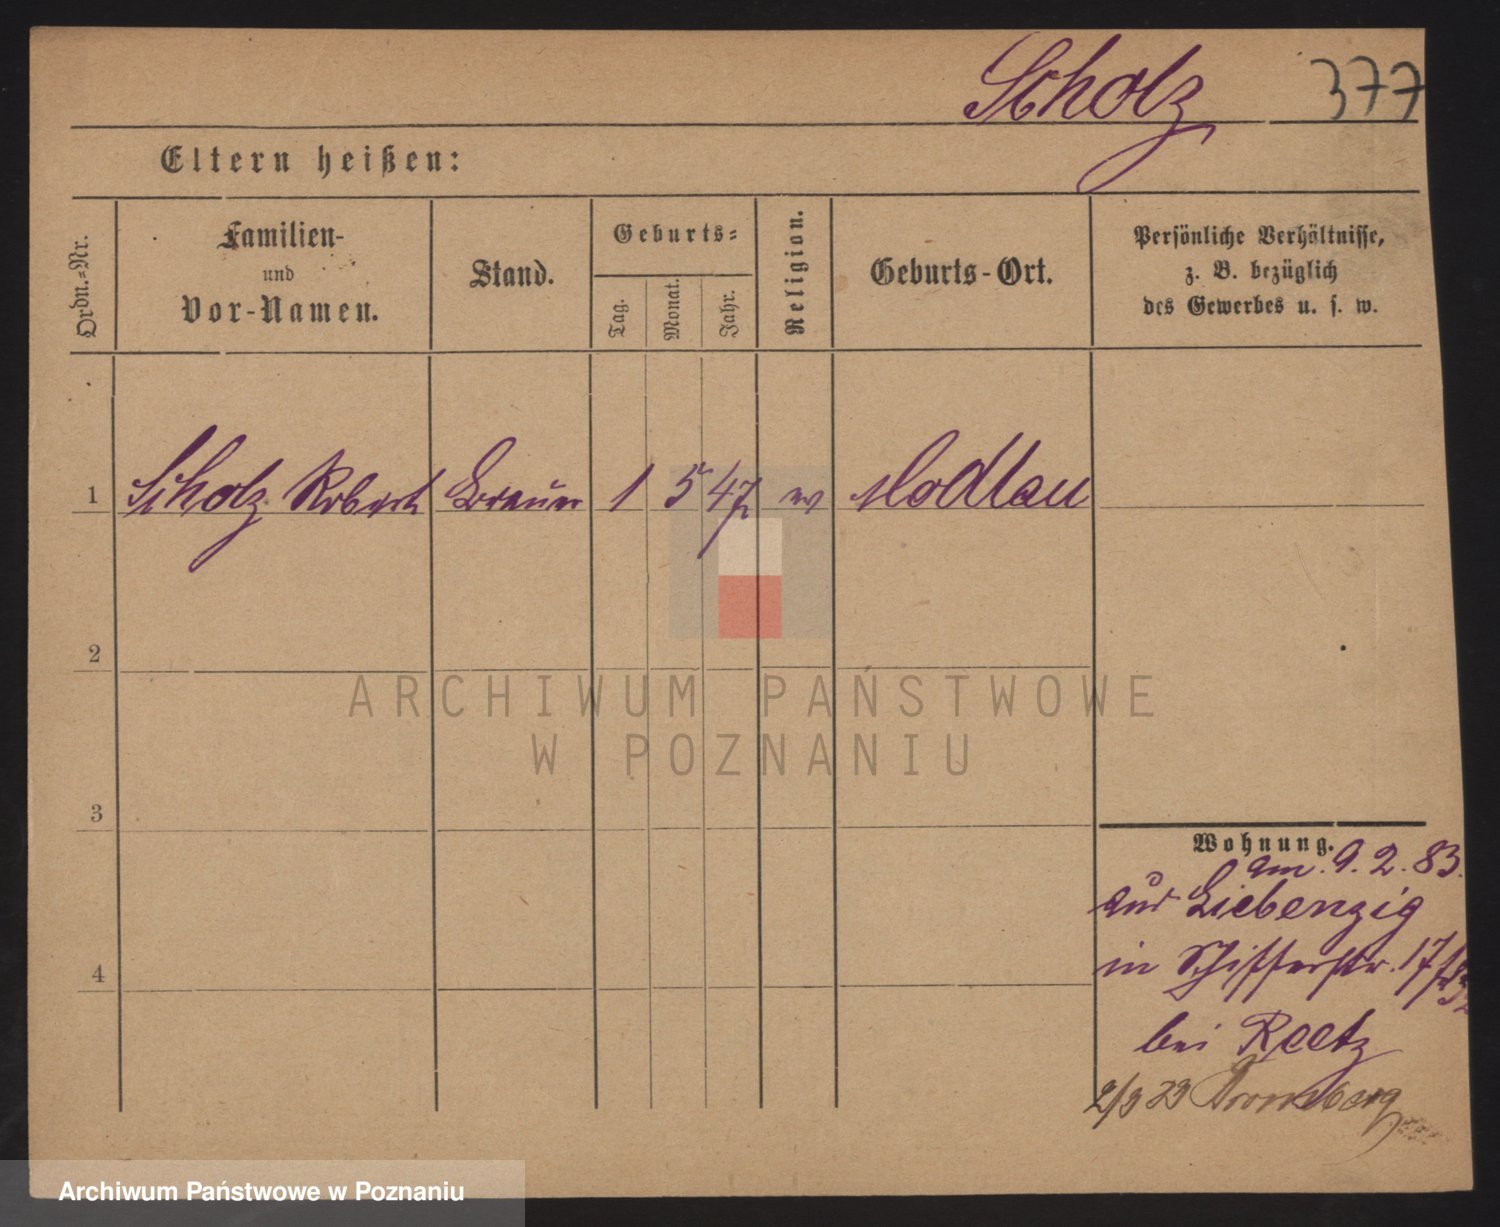 Scholz 377
Eltern heißen:
Ordn.-Nr.
Familien-
und
Vor-Namen.
Stand.
Geburts-
Tag.
Monat.
Jahr.
Religion.
Geburts-Ort.
Persönliche Verhältnisse,
z. B. bezüglich
des Gewerbes u. s. w.
1 Scholz Robert Brauer 1 5 47 ev Modlau
2
ARCHIWUM PAŃSTWOWE
W POZNANIU
3
Wohnung.
am. 9. 2. 83.
aus Liebenzig
in Schifferstr. 17
4
bei Reetz
2/3 83 Bromberg
Archiwum Państwowe w Poznaniu